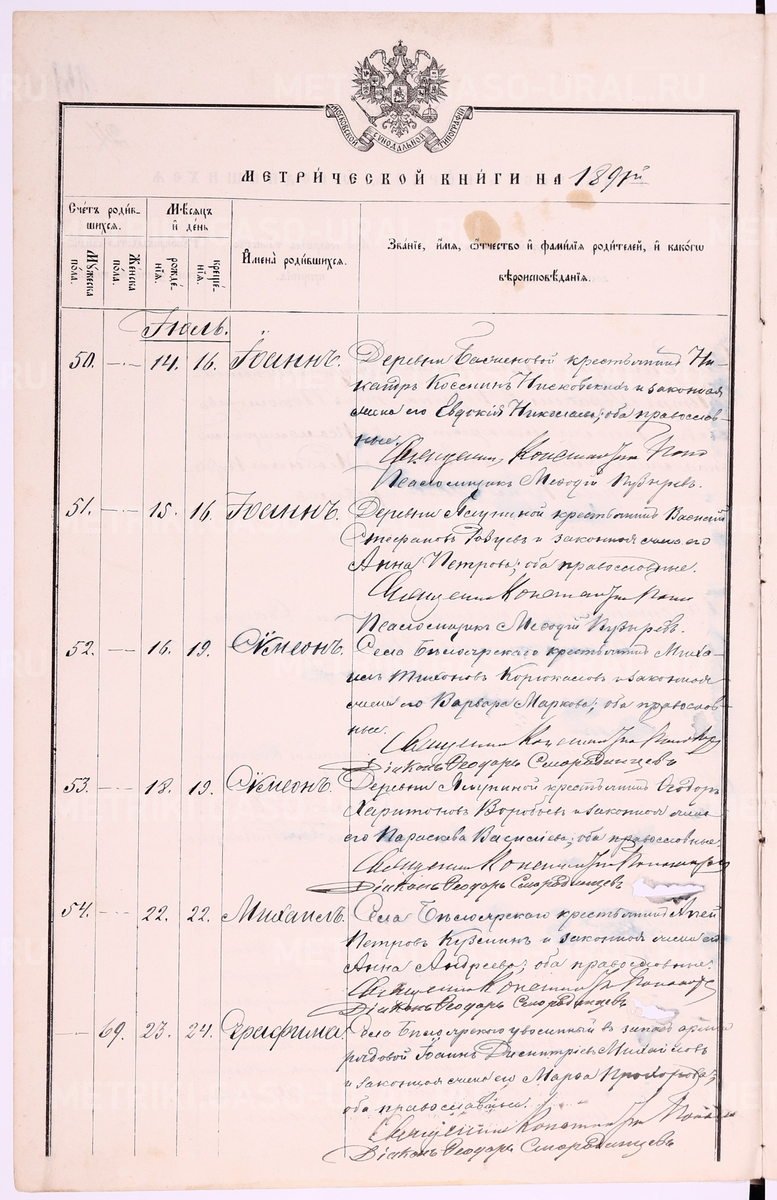 METRIKI-GASO-URAL.RU
МОСКОВСКОЙ СѴНОДАЛЬНОЙ ТИПОГРАФІИ
МЕТРИ́ЧЕСКОЙ КНИ́ГИ НА 1891й
Сче́тъ роди́в-
шихся.
Мѣ́сяцъ
и҆ де́нь
Мꙋ́жеска по́ла.
Же́нска по́ла.
рожде́нїѧ.
креще́нїѧ.
И҆мена̀ роди́вшихся.
Зва́нїе, и҆́мѧ, ѻ҆́тчество и҆ фами́лїѧ роди́телей, и҆ како́гѡ
вѣроисповѣ́данїѧ.
Іюль.
50. — 14. 16. Іоаннъ. Деревни крестьянинъ Ни-
Нисковскихъ и законная
жена его Евдокія Николаева; оба православ-
ные.
Священник Константин Попов
Псаломщикъ Меѳодій
51. — 15. 16. Іоаннъ. Деревни крестьянинъ Василій
Стефановъ и законная жена его
Анна Петрова; оба православные.
Священник Константин Попов
Псаломщикъ Меѳодій
52. — 16. 19. Сѵмеонъ. Села Бѣлоярскаго крестьянинъ Миха-
илъ Тихоновъ и законная
жена его Варвара Маркова; оба православ-
ные.
Священник Константин Попов
Діаконъ Ѳеодоръ Смородинцевъ
53. — 18. 19. Сѵмеонъ. Деревни крестьянинъ Ѳеодоръ
Харитоновъ Воробьев и законная жена
его Параскева Василіева; оба православные.
Священник Константин Попов
Діаконъ Ѳеодоръ Смородинцевъ
54. — 22. 22. Михаилъ. Села Бѣлоярскаго крестьянинъ
Петровъ Кузминъ и законная жена его
Анна Андреева; оба православные.
Священник Константин Попов
Діаконъ Ѳеодоръ Смородинцевъ
— 69. 23. 24. Серафима. Села Бѣлоярскаго уволенный въ запасъ арміи
рядовой Іоаннъ Димитріевъ Михайловъ
и законная жена его Марѳа Прохорова;
оба православные.
Священник Константин Попов
Діаконъ Ѳеодоръ Смородинцевъ